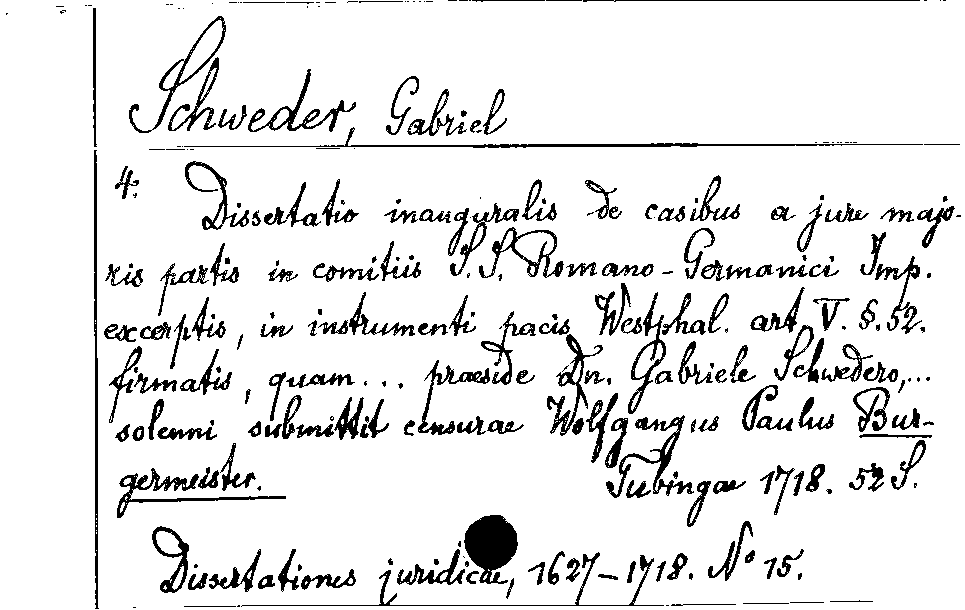 Schweder, Gabriel
4. Dissertatio inauguralis de casibus a jure majo-
ris partis in comitiis S. S. Romano-Germanici Imp.
excerptis, in instrumenti pacis Westphal. art. V. §. 52.
firmatis, quam... praeside Dn. Gabriele Schwedero,...
solenni submittit censurae Wolfgangus Paulus Bur-
germeister. Tubingae 1718. 52 S.
Dissertationes juridicae, 1627-1718. No 15.